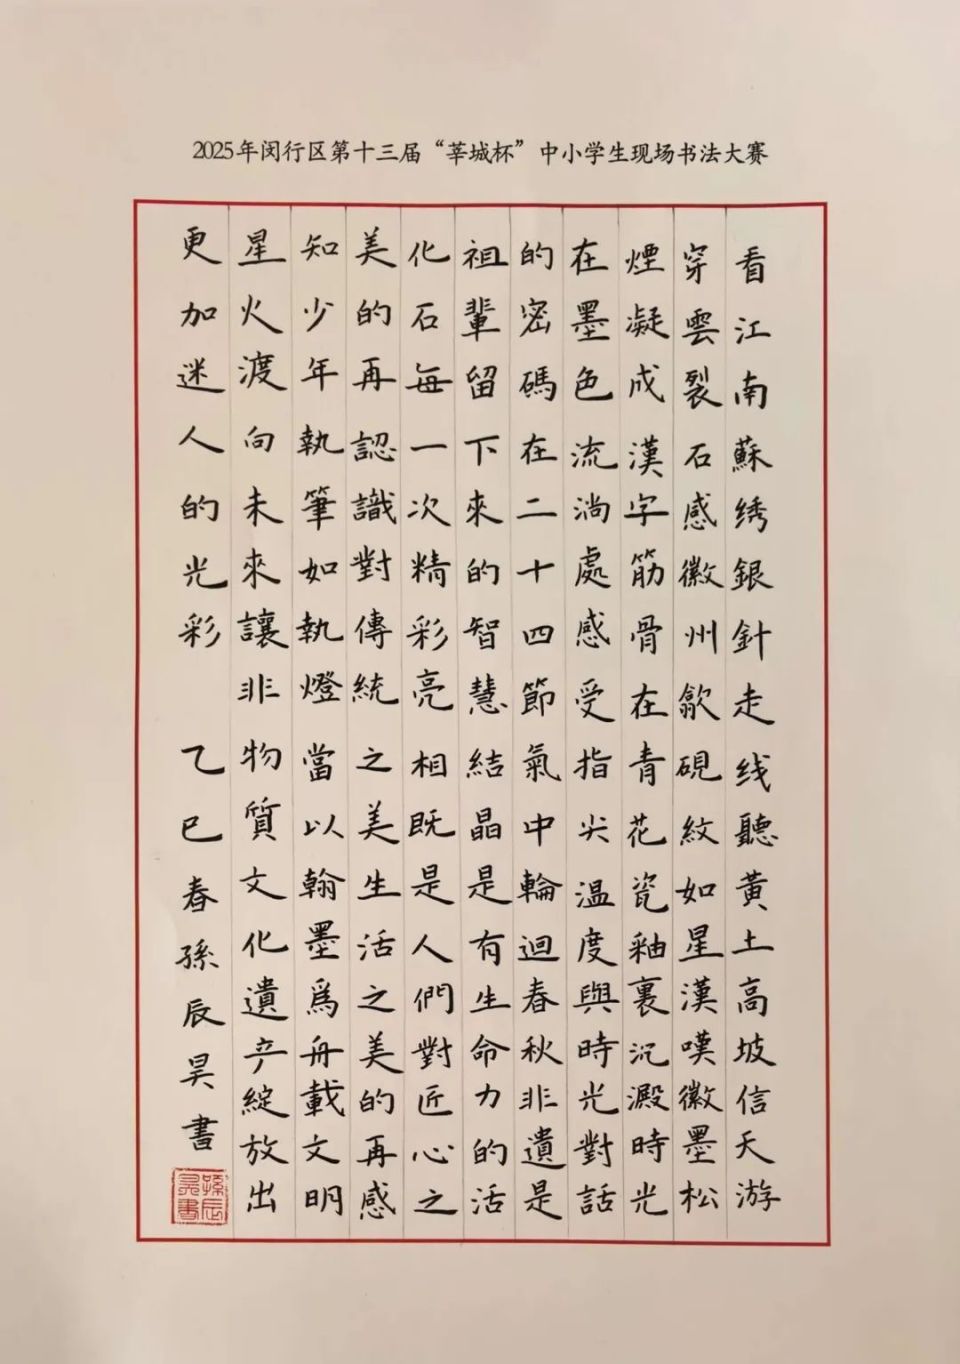 2025年闵行区第十三届“莘城杯”中小学生现场书法大赛
看江南蘇绣銀針走线聽黃土高坡信天游
穿雲裂石感徽州歙硯紋如星漢嘆徽墨松
煙凝成漢字筋骨在青花瓷釉裏沉澱時光
在墨色流淌處感受指尖溫度與時光對話
的密碼在二十四節氣中輪迴春秋非遺是
祖輩留下來的智慧結晶是有生命力的活
化石每一次精彩亮相既是人們對匠心之
美的再認識對傳統之美生活之美的再感
知少年執筆如執燈當以翰墨爲舟載文明
星火渡向未來讓非物質文化遺产綻放出
更加迷人的光彩 乙巳春孫辰昊書
孫辰昊書